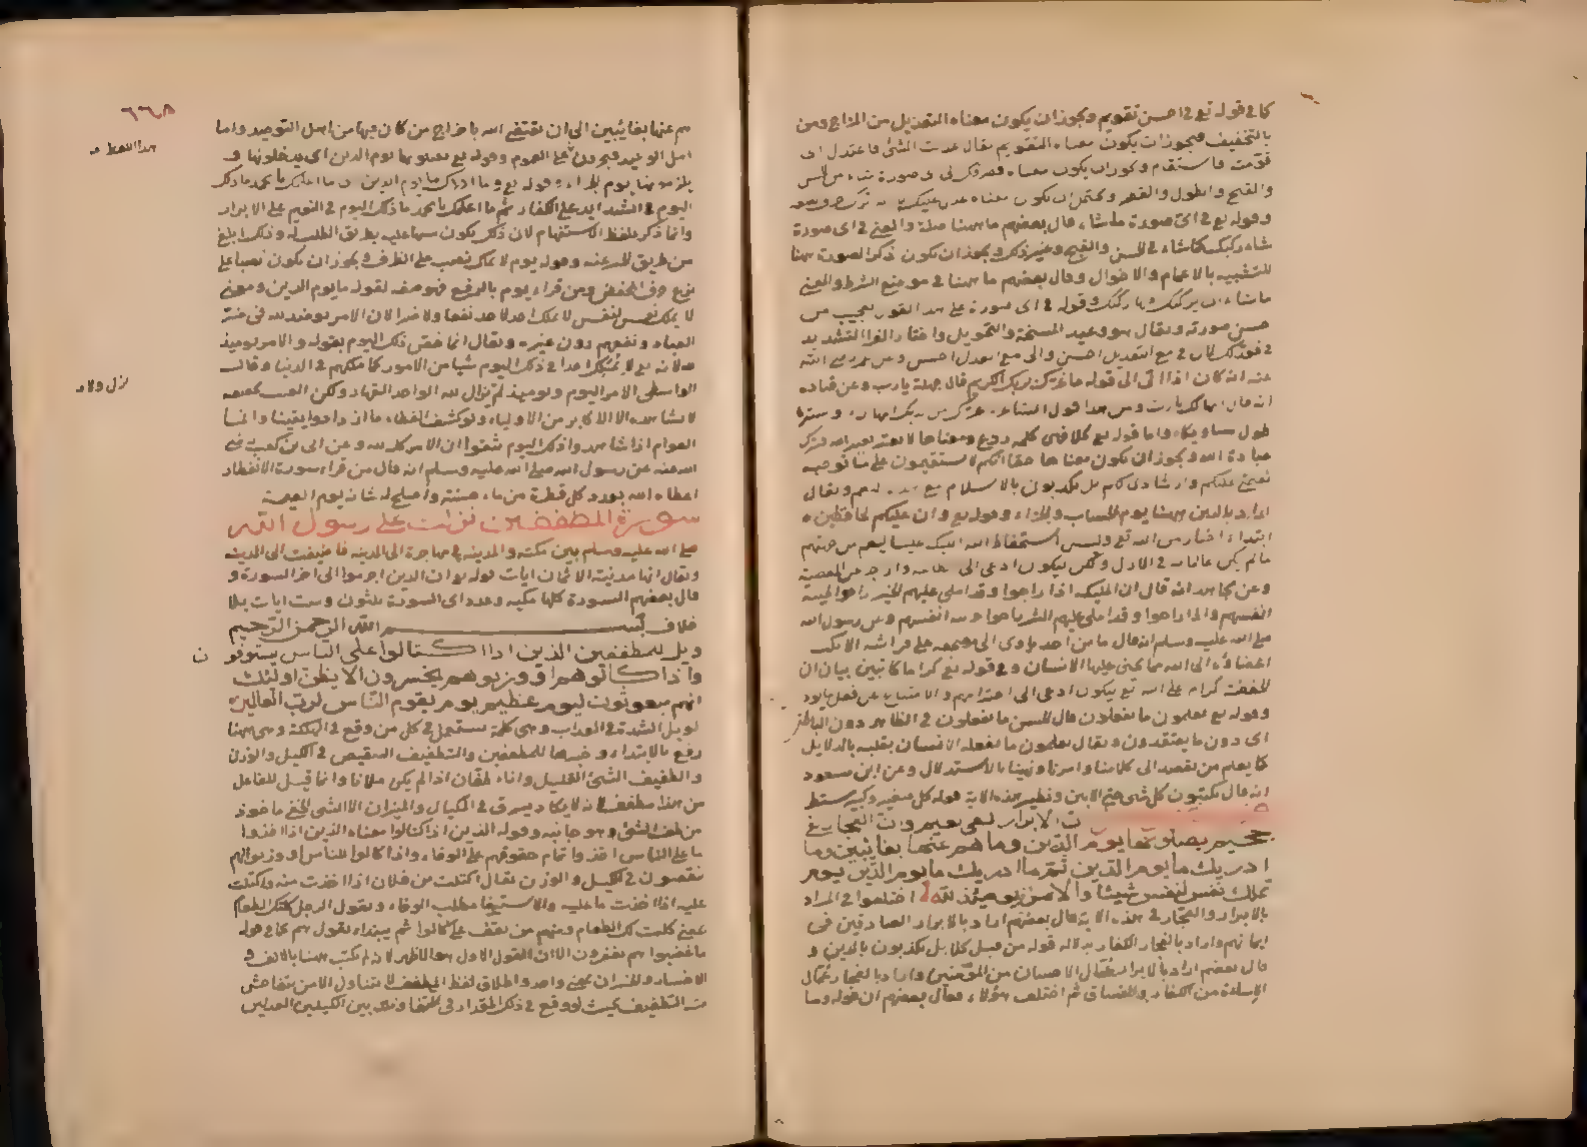 كما في قوله تع في احسن تقويم ويجوز ان يكون معناه التعديل من المزاج ومن
بالتخفيف فيجوز ان يكون معناه التقويم يقال عدلت الشئ فاعتدل اى
قومت فاستقام ويجوز ان يكون معناه فصرفك في اى صورة شاء من الحسن
والقبح والطول والقصر ويحتمل ان يكون معناه عدل
وقوله تع في اى صورة ما شاء قال بعضهم ما ههنا صلة والمعنى في اى صورة
شاء ركبك كما شاء في الحسن والقبح وغير ذلك ويجوز ان يكون ذكر الصورة ههنا
للتشبيه بالاعمام والاخوال وقال بعضهم ما ههنا في موضع الشرط والمعنى
ما شاء ان يركبك ركبك وقوله في اى صورة على هذا القول من
حسن صورته ويقال هو وعيد المسخ والتحويل واختار الفرا التشديد
في فعدلك لان في مع التعديل احسن والى مع العدل احسن وعن عمر رضى الله
عنه انه كان اذا اتى الى قوله ما غرك بربك الكريم قال جهله يا رب وعن قتادة
انه قال
طول واما قوله تع كلا فهى كلمة ردع ومعناها
عبادة الله ويجوز ان يكون معناها حقا انكم لا تستقيمون على ما توجبه
نعمتى عليكم وارشادى لكم بل تكذبون بالاسلام مع ويقال
اراد بالدين ههنا يوم الحساب والجزاء وقوله تع وان عليكم لحافظين
ابتداء اخبار من الله تع وليس استحفاظ الله الملك علينا ليعلم من جهتهم
ما لم يكن عالما به في الازل ولكن ليكون ادعى الى وازجر عن المعصية
وعن مجاهد انه قال ان الملئكة اذا راحوا وقد املى عليهم الخير راحوا طيبة
انفسهم واذا راحوا وقد املى عليهم الشر راحوا انفسهم وعن رسول الله
صلى الله عليه وسلم انه قال ما من احد ياوى الى مضجعه على فراشه الا
اعضاؤه الى الله مما يجنى عليها الانسان وفي قوله تع كراما كاتبين بيان ان
الحفظة كرام على الله تع ليكون ادعى الى احترامهم والامتناع عن فعل
وقوله تع يعلمون ما تفعلون قال الحسن ما تفعلون في الظاهر دون الباطن
اى دون ما يعتقدون ويقال يعلمون ما يفعله الانسان بقلبه بالدلايل
كما يعلم من يقصد الى كلامنا وامرنا ونهينا بالاستدلال وعن ابن مسعود
انه قال يكتبون كل شئ حتى الانين ونظير هذه الاية قوله كل صغير وكبير مستطر
ان الابرار لفى نعيم وان الفجار لفى
جحيم يصلونها يوم الدين وما هم عنها بغائبين وما
ادريك ما يوم الدين ثم ما ادريك ما يوم الدين يوم
لا تملك نفس لنفس شيئا والامر يومئذ لله اختلفوا في المراد
بالابرار والفجار في هذه الاية قال بعضهم اراد بالابرار الصادقين في
ايمانهم واراد بالفجار الكفار بدلالة قوله من قبل كلا بل تكذبون بالدين و
قال بعضهم اراد بالابرار عمال الاحسان من المؤمنين واراد بالفجار عمال
الاساءة من الكفار والفساق ثم اختلف هؤلاء فقال بعضهم ان قوله وما
٦٦٨
هم عنها بغائبين الى ان يقتضى الله باخراج من كان فيها من اهل التوحيد واما
اهل الوعيد فيجرون على العموم وقوله تع يصلونها يوم الدين اى يدخلونها
يوم الجزاء وقوله تع وما ادراك ما يوم الدين
اليوم في الشدايد على الكفار ثم ما اعلمك يا محمد ما ذلك اليوم في النعيم على الابرار
وانما ذكر بلفظ الاستفهام لان ذكر يكون
من طريق وقوله يوم لا تملك نصب على الظرف ويجوز ان يكون نصبا على
نزع حرف الخفض ومن قراء يوم بالرفع فهو صفة لقوله ما يوم الدين ومعنى
لا يملك نفس لنفس لا يملك احد لاحد نفعا ولا ضرا لان الامر يومئذ لله في ضر
العباد ونفعهم دون غيره ويقال انما خص ذلك اليوم بقوله والامر يومئذ
لله لانه تع لا يملك احدا في ذلك اليوم شيا من الامور كما ملكهم في الدنيا وقال
الواسطى الامر اليوم ويومئذ لم يزال لله الواحد القهار ولكن
لا يشاهده الا الاكابر من الاولياء ولو كشف الغطاء ما ازدادوا يقينا وانما
العوام اذا شاهدوا ذلك اليوم شهدوا ان الامر كله لله وعن ابى بن كعب رضى
الله عنه عن رسول الله صلى الله عليه وسلم انه قال من قراء سورة الانفطار
اعطاه الله بعدد كل قطرة من ماء حسنة واصلح له شانه يوم القيمة
سورة المطففين نزلت على رسول الله
صلى الله عليه وسلم بين مكة والمدينة في مهاجرة الى المدينة فاضيفت الى المدينة
ويقال انها مدنية الا ثمان ايات قوله ان الذين اجرموا الى اخر السورة و
قال بعضهم السورة كلها مكية وعدد اى السورة ثلثون وست ايات بلا
خلاف بسم الله الرحمن الرحيم
ويل للمطففين الذين اذا اكتالوا على الناس يستوفون
واذا كالوهم او وزنوهم يخسرون الا يظن اولئك
انهم مبعوثون ليوم عظيم يوم يقوم الناس لرب العالمين
الويل الشدة في العذاب وهى كلمة تستعمل في كل من وقع في الهلكة وهى ههنا
رفع بالابتداء وخبرها للمطففين والتطفيف التنقيص في الكيل والوزن
والطفيف الشئ القليل واناء طفان اذا لم يكن ملانا وانما قيل للفاعل
من هذا مطفف لانه لا يكاد يسرق في المكيال والميزان الا الشئ الخفى ماخوذ
من طف الشئ وهو جانبه وقوله الذين اذا كتالوا معناه الذين اذا اخذوا
ما على الناس اخذوا تمام حقوقهم على الوفاء واذا كالوا للناس او وزنوا لهم
ينقصون في الكيل والوزن يقال اكتلت من فلان اذا اخذت منه واكتلت
عليه اذا اخذت ما عليه والاستيفا طلب الوفاء ويقول الرجل كلتك الطعام
بمعنى كلت لك الطعام ومنهم من يقف على كالوا ثم يبتداء يقول هم كما في قوله
ما غضبوا هم يغفرون الا ان القول الاول هو الاظهر لانه لم يكتب ههنا بالالف و
الاخسار والخسران بمعنى واحد واطلاق لفظ المطفف لا يتناول الا من يتفاحش
منه التطفيف بحيث لو وقع في ذلك المقدار في بين الكيلين العدلين